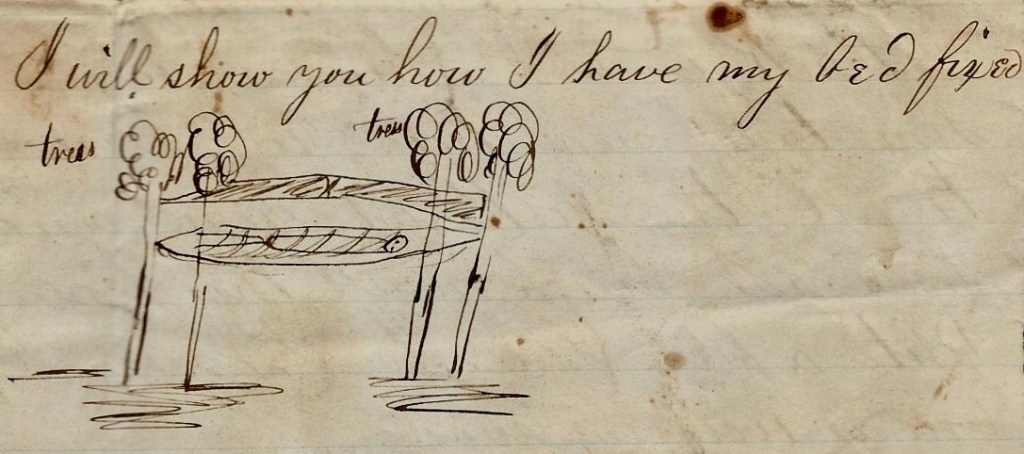 I will show you how I have my bed fixed
tress tress